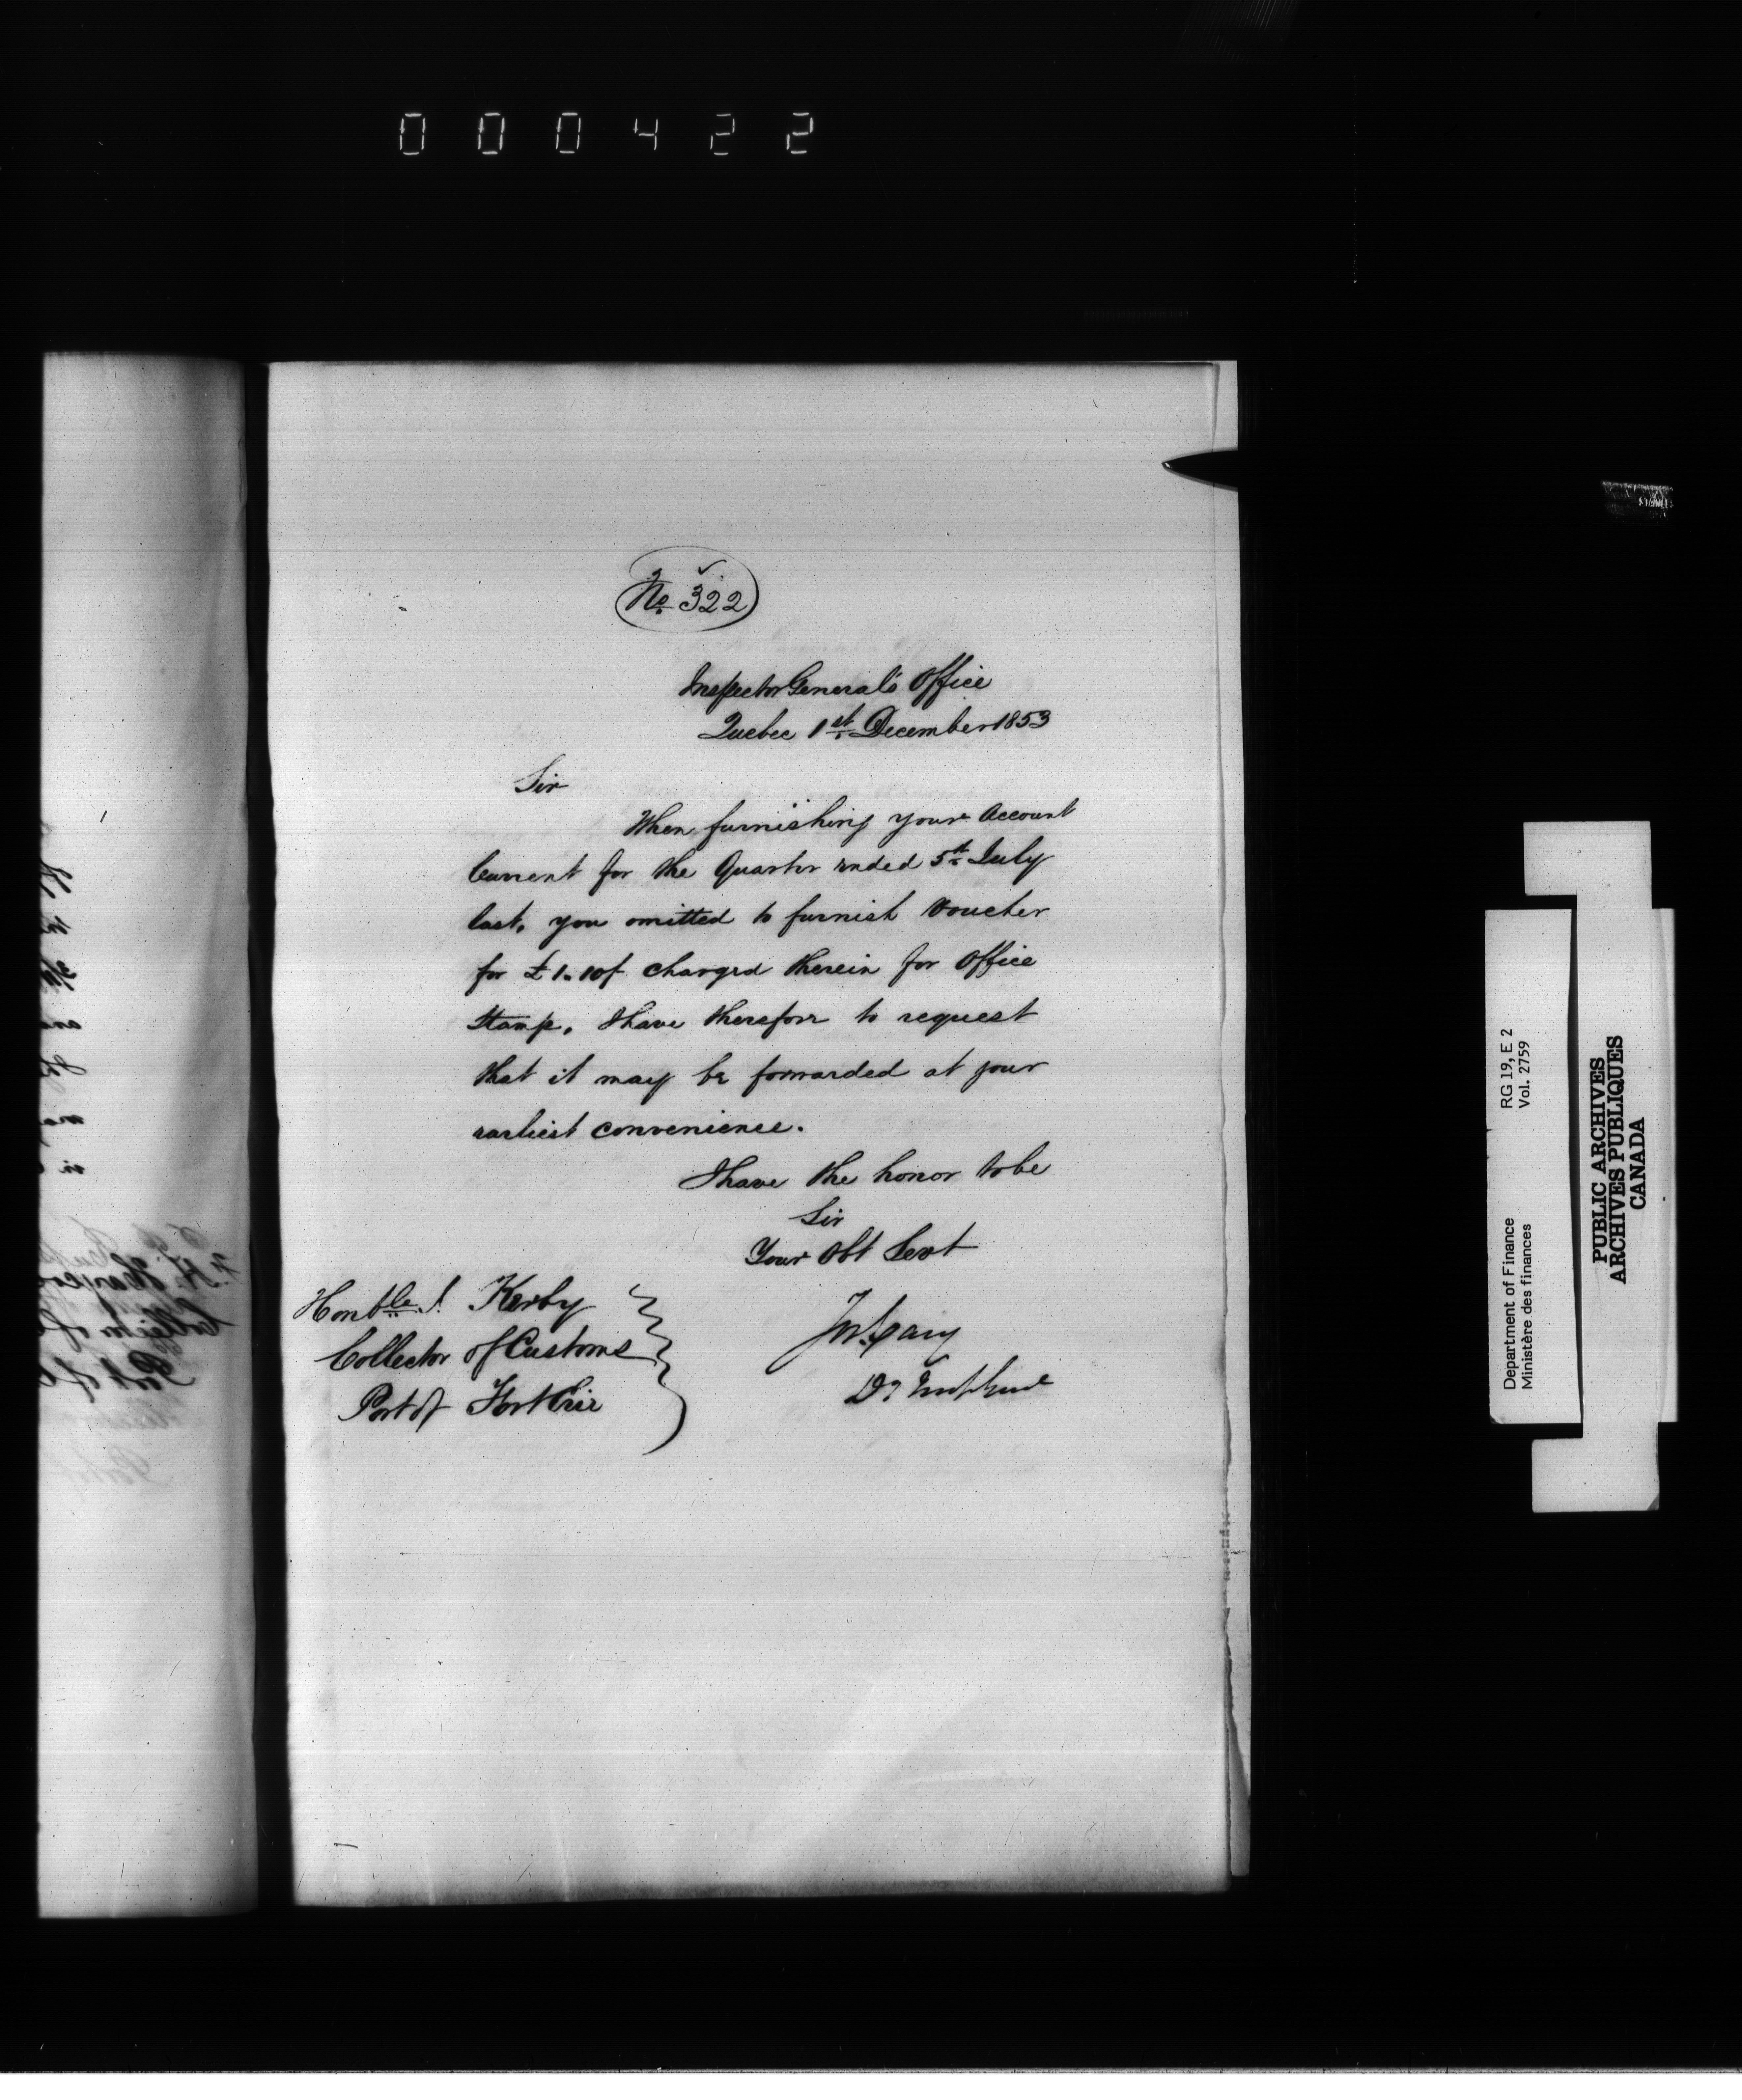 000422
No 322
Inspector General's Office
Quebec 1st December 1853
Sir
When furnishing your Account
Current for the Quarter ended 5th July
last, you omitted to furnish Voucher
for £1.10/ charged therein for Office
Stamp, I have therefore to request
that it may be forwarded at your
earliest convenience.
I have the honor to be
Sir
Your Obt Servt
Jos. Cary
Dy Insp Genl
Honble J. Kerby
Collector of Customs
Port of Fort Erie
Department of Finance RG 19, E 2
Ministère des finances Vol. 2759
PUBLIC ARCHIVES
ARCHIVES PUBLIQUES
CANADA